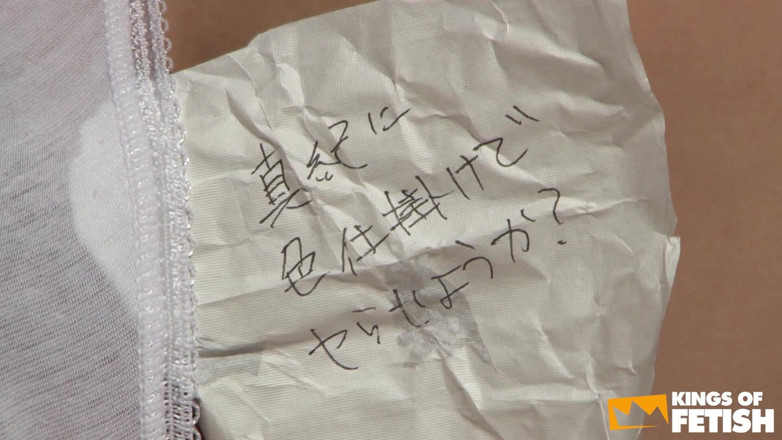 真紀に
色仕掛けで
やらせようか?
KINGS OF
FETISH